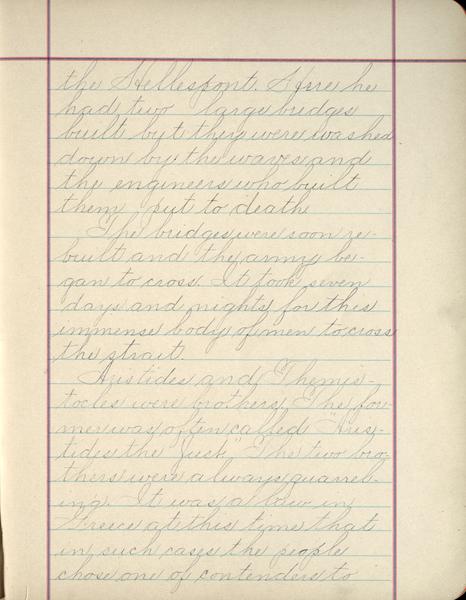 the Hellespont. Here he
had two large bridges
built but they were washed
down by the waves and
the engineers who built
them put to death
The bridges were soon re-
built and the army be-
gan to cross. It took seven
days and nights for this
immense body of men to cross
the strait.
Aristides and Themis-
tocles were brothers. The for-
mer was often called "Aris-
tides the Just," The two bro-
thers were always quarrel-
ing. It was a law in
Greece at this time that
in such cases the people
chose one of contenders to